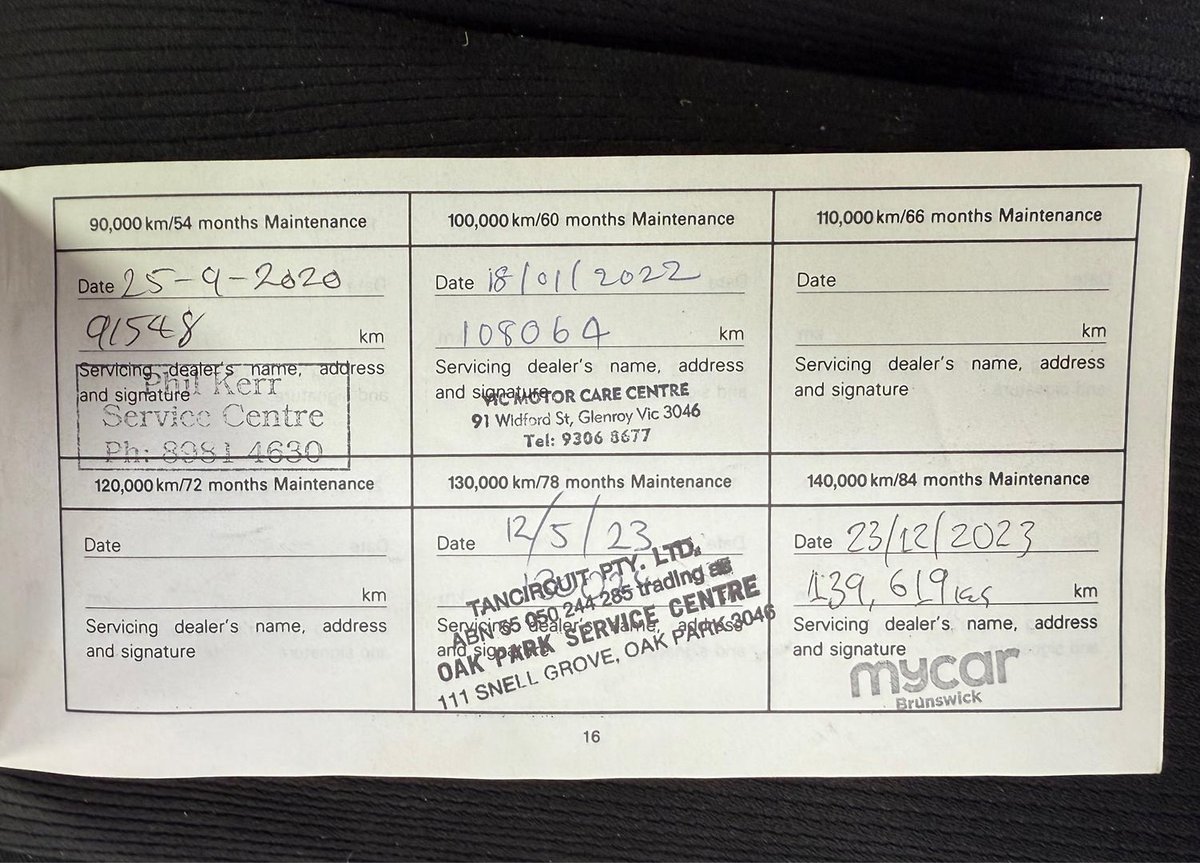 90,000 km/54 months Maintenance
Date 25-9-2020
91548 km
Servicing dealer's name, address
and signature
Phil Kerr
Service Centre
Ph: 8981 4630
100,000 km/60 months Maintenance
Date 18/01/2022
108064 km
Servicing dealer's name, address
and signature
VIC MOTOR CARE CENTRE
91 Widford St, Glenroy Vic 3046
Tel: 9306 8677
110,000 km/66 months Maintenance
Date
km
Servicing dealer's name, address
and signature
120,000 km/72 months Maintenance
Date
km
Servicing dealer's name, address
and signature
130,000 km/78 months Maintenance
Date 12/5/23
Servicing dealer's name, address
and signature
TANCIRCUIT PTY. LTD.
ABN 55 050 244 285 trading as
OAK PARK SERVICE CENTRE
111 SNELL GROVE, OAK PARK 3046
140,000 km/84 months Maintenance
Date 23/12/2023
139,619 km
Servicing dealer's name, address
and signature
mycar
Brunswick
16